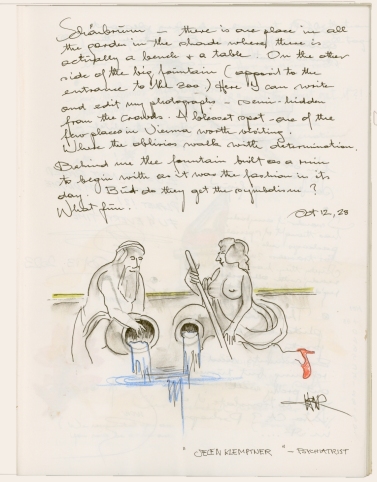 Schönbrunn – there is one place in all
the garden in the shade where there is
actually a bench & a table. On the other
side of the big fountain (opposit to the
entrance to the zoo) Here I can write
and edit my photographs – semi-hidden
from the crowds. A blessed spot – one of the
few places in Vienna worth visiting.
Where the oblivios walk with determination.
Behind me the fountain built as a ruin
to begin with as it was the fashion in its
day. But do they get the symbolism?
What fun.
Oct 12, 23
" KLEMPTNER " – PSYCHIATRIST